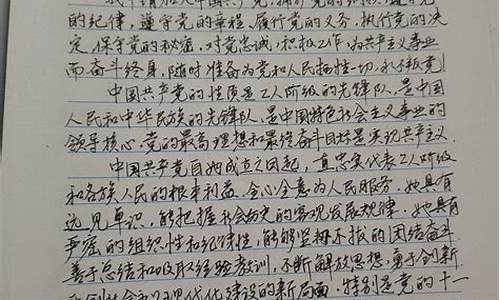 我申请加入中国共产党，拥护党的纲领，遵守党
的纪律，遵守党的章程，履行党的义务，执行党的决
定，保守党的秘密，对党忠诚，积极工作，为共产主义事业
而奋斗终身，随时准备为党和人民牺牲一切，永不叛党
中国共产党的性质是工人阶级的先锋队，是中国
人民和中华民族的先锋队，是中国特色社会主义事业的
领导核心，党的最高理想和最终奋斗目标是实现共产主义.
中国共产党自她成立之日起，直忠实代表工人阶级
和各族人民的根本利益，全心全意为人民服务。她具有
远见卓识，能把握社会历史的客观发展规律。她具有
严密的组织性和纪律性，能够坚持不拔的团结奋斗
善于总结和吸取经验教训，不断解放思想，勇于创新
社会主义现代化建设的新局面，特别是党的十一